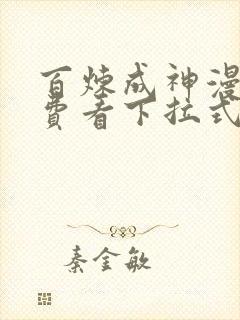 百炼成神漫
费看下拉式
秦金敏